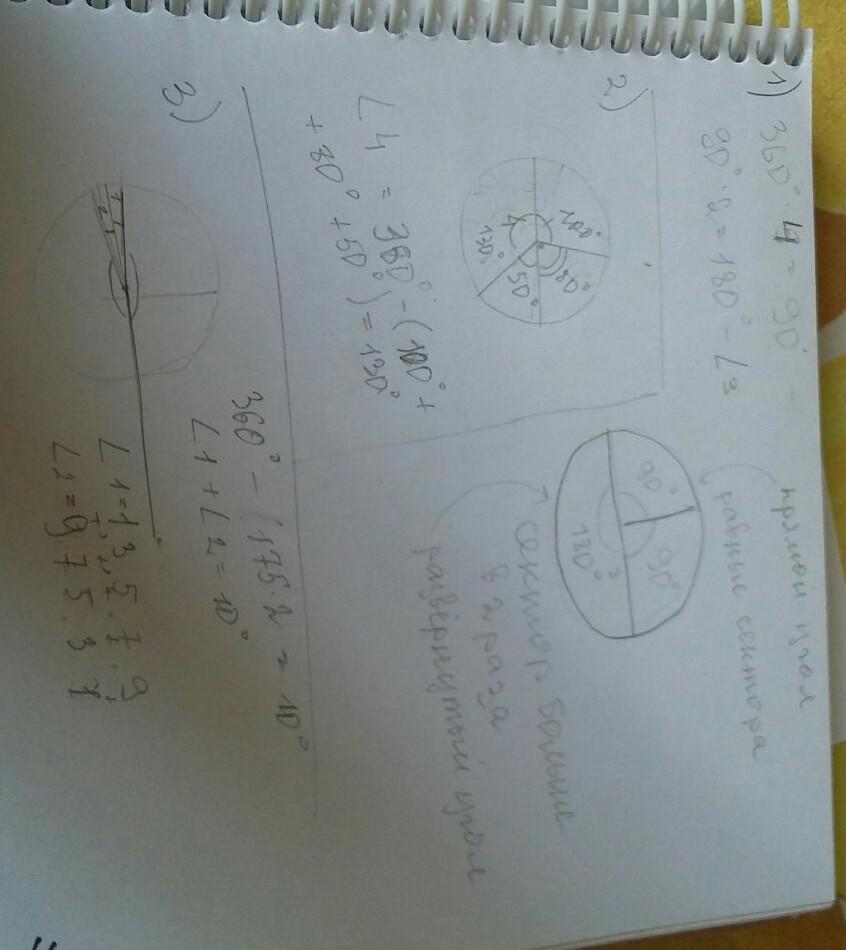 1) 360° · 4 = 90° -
прямой угол
90° · 2 = 180° - ∠3
равные сектора
90°
90°
3
180°
сектор больше
в 2 раза
развёрнутый угол
2)
100°
80°
4
130°
50°
∠4 = 360° - (100° +
+ 80° + 50°) = 130°
3)
360° - (175 · 2 = 10°
∠1 + ∠2 = 10°
∠1 = 1, 3, 5, 7, 9
∠2 = 9 7 5 3 1